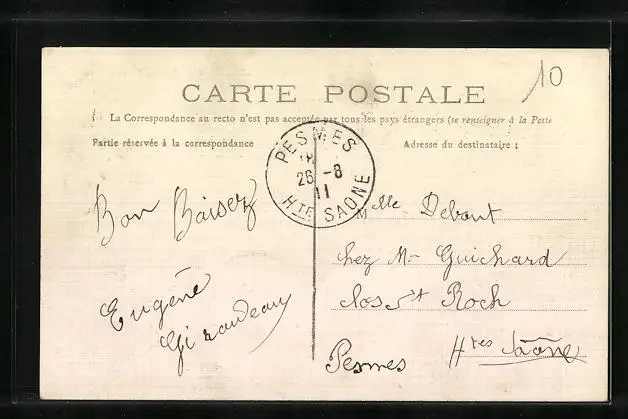 10
CARTE POSTALE
La Correspondance au recto n'est pas acceptée par tous les pays étrangers (se renseigner à la Poste
Partie réservée à la correspondance
Adresse du destinataire :
PESMES
26 -8
11
HTE SAONE
Bon Baisez
Eugène
Giraudeau
Melle Debout
chez Mr Guichard
clos St Roch
Pesmes Htes Saône